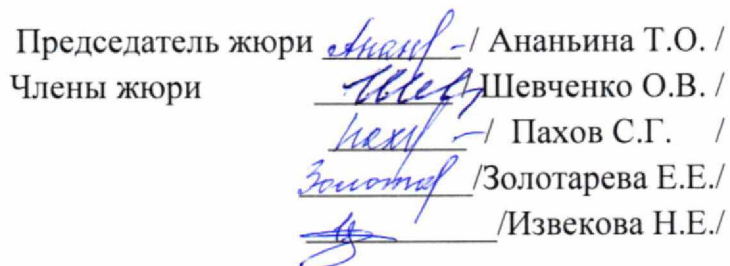 Председатель жюри Анан /Ананьина Т.О. /
Члены жюри Шевч /Шевченко О.В. /
Пах / Пахов С.Г. /
Золота /Золотарева Е.Е./
/Извекова Н.Е./